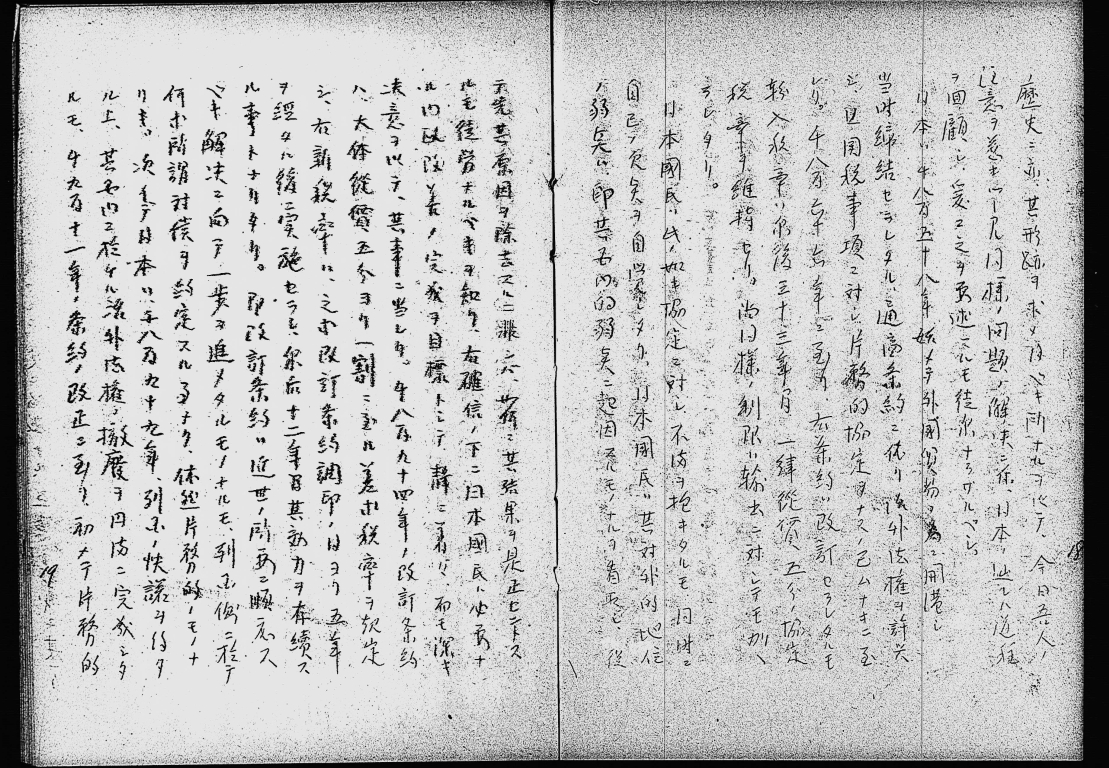 歴史ニ亦其形跡ヲ求メ得ベキ所ナルヲ以テ、今日吾人ノ
注意ヲ惹キツヽアル同様ノ問題ノ解決ニ係ル日本ノ
ヲ回顧シ、茲ニ之ヲ叙述スルモ徒爾ナラザルベシ
日本ハ千八百五十八年始メテ外国貿易ノ為ニ開港シ
当時締結セラレタル通商条約ニ依リ治外法権ヲ許与
シ、且関税事項ニ対シ片務的協定ヲナスノ已ムナキニ至
レリ。千八百六十六年ニ至リ右条約ハ改訂セラレタルモ
輸入税率ハ爾後三十三年間一律従価五分ノ協定
税率ヲ維持セリ。尚同様ノ制限ハ輸出ニ対シテモ加ヘ
ラレタリ。
日本國民ハ此ノ如キ協定ニ対シ不満ヲ抱キタルモ同時ニ
自己ノ欠点ヲ自覚シタリ。日本國民ハ其対外的地位
ノ弱点ハ即其国内的弱点ニ起因スルモノナルヲ看取シ、從
テ先其原因ヲ除去スルニ非レハ、如何ニ其結果ヲ是正セントス
ルモ徒労ナルヘキヲ知リ、右確信ノ下ニ日本國民ハ必要ナ
ル内政改善ノ完成ヲ目標トシテ静ニ着々、而モ深キ
决意ヲ以テ、其事ニ当レリ。千八百九十四年ノ改訂条約
ハ、大体従價五分ヨリ一割ニ至ル差等税率ヲ規定
シ、右新税率ハ、之ヲ改訂条約調印ノ日ヨリ五年
ヲ経タル後ニ実施セラレ、爾后十二年間其効力ヲ存続ス
ル事トナリタリ。即改訂条約ハ近世ノ所要ニ順応ス
ヘキ解決ニ向テ一歩ヲ進メタルモノナルモ、列国側ニ於テ
何等所謂対償ヲ約定スル事ナク、依然片務的ノモノナ
リキ。次ギテ日本ハ、千八百九十九年、列国ノ快諾ヲ得タ
ル上、其國内ニ於ケル治外法権ノ撤廃ヲ円満ニ完成シタ
ルモ、千九百十一年ノ条約ノ改正ニ至リ、初メテ片務的
18
19